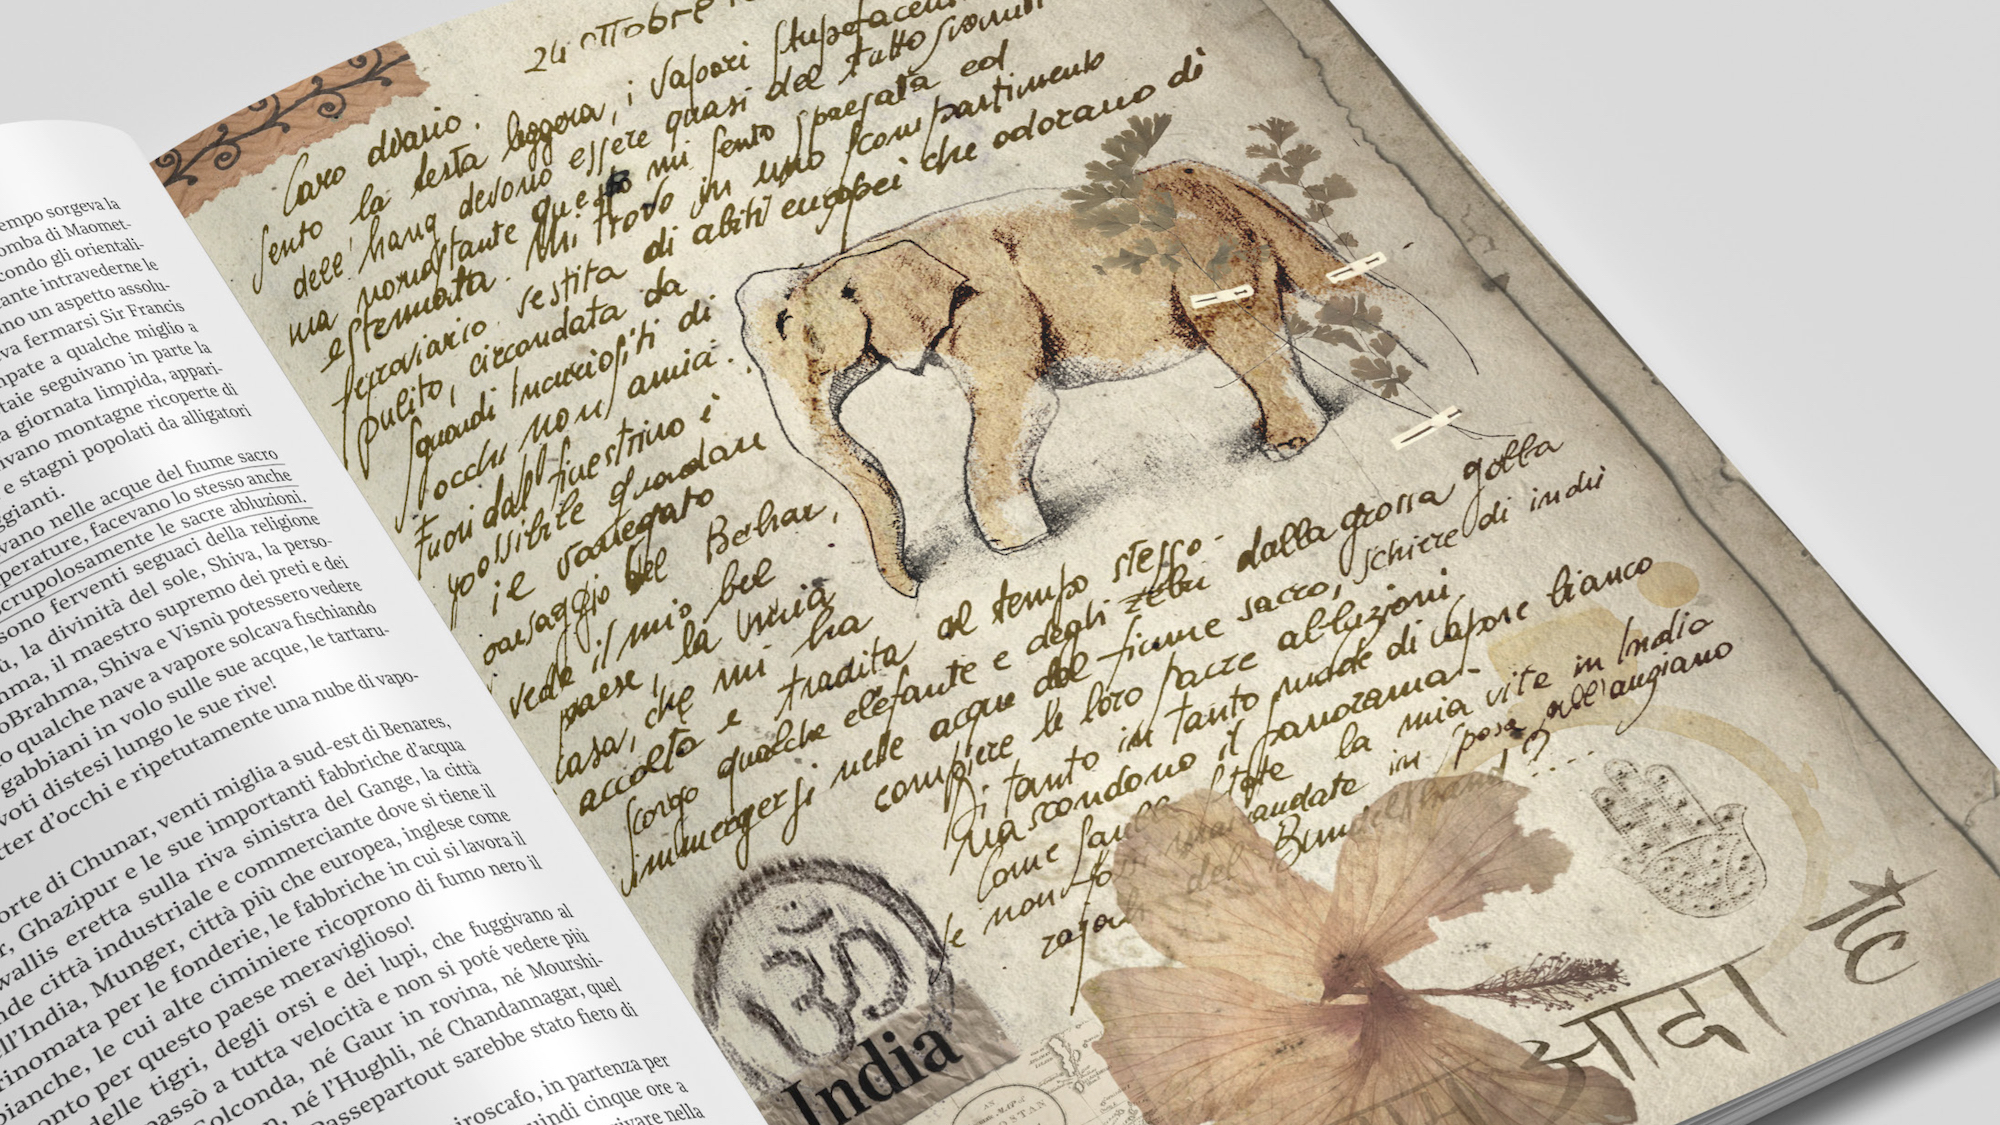 empo sorgeva la
omba di Maomet-
condo gli orientali-
ante intravederne le
no un aspetto assolu-
va fermarsi Sir Francis
npate a qualche miglio a
taie seguivano in parte la
a giornata limpida, appari-
ivano montagne ricoperte di
e stagni popolati da alligatori
ggianti.
vano nelle acque del fiume sacro
perature, facevano lo stesso anche
scrupolosamente le sacre abluzioni.
sono ferventi seguaci della religione
ù, la divinità del sole, Shiva, la perso-
hma, il maestro supremo dei preti e dei
oBrahma, Shiva e Visnù potessero vedere
o qualche nave a vapore solcava fischiando
gabbiani in volo sulle sue acque, le tartaru-
voti distesi lungo le sue rive!
tter d'occhi e ripetutamente una nube di vapo-
orte di Chunar, venti miglia a sud-est di Benares,
r, Ghazipur e le sue importanti fabbriche d'acqua
wallis eretta sulla riva sinistra del Gange, la città
nde città industriale e commerciante dove si tiene il
ll'India, Munger, città più che europea, inglese come
rinomata per le fonderie, le fabbriche in cui si lavora il
bianche, le cui alte ciminiere ricoprono di fumo nero il
onto per questo paese meraviglioso!
delle tigri, degli orsi e dei lupi, che fuggivano al
passò a tutta velocità e non si poté vedere più
Golconda, né Gaur in rovina, né Mourshi-
n, né l'Hughli, né Chandannagar, quel
Passepartout sarebbe stato fiero di
iroscafo, in partenza per
uindi cinque ore a
ivare nella
24 ottobre
Caro diario.
Sento la testa leggera, i vapori stupefacen
dell'hang devono essere quasi del tutto svanit
ma nonostante questo mi sento spaesata ed
estenuata. Mi trovo in uno scompartimento
ferroviario vestita di abiti europei che odorano di
pulito, circondata da
sguardi incuriositi di
occhi non amici.
Fuori dal finestrino è
possibile guardare
il variegato
paesaggio del Behar,
vede il mio bel
paese, la mia
casa, che mi ha
accolta e tradita al tempo stesso.
Scorgo qualche elefante e degli zebù dalla grossa gobba
immergersi nelle acque del fiume sacro, schiere di indù
compiere le loro sacre abluzioni.
Di tanto in tanto nude di vapore bianco
nascondono il panorama.
Come sarebbe stata la mia vita in India
se non fossi mai andata in sposa all'anziano
rajah del Bundelkhand!?....
ॐ
India
AN
STAN
आदा
TC